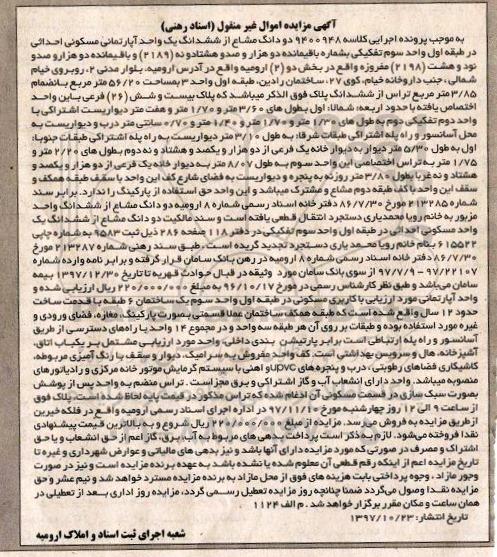 آگهی مزایده اموال غیر منقول (اسناد رهنی)
به موجب پرونده اجرایی کلاسه ۹۴۰۰۹۴۸ دو دانگ مشاع از ششدانگ یک واحد آپارتمانی مسکونی احداثی
در طبقه اول واحد سوم تفکیکی بشماره باقیمانده دو هزار و صدو هشتادو نه (۲۱۸۹) و باقیمانده دو هزار و صدو
نود و هشت (۲۱۹۸) مفروزه واقع در بخش دو (۲) ارومیه واقع در آدرس ارومیه، بلوار مدنی ۲، روبروی خیام
شمالی، جنب دارو خانه خیام، کوی ۲۷، ساختمان رادین، طبقه اول واحد ۳ بمساحت ۵۶/۲۰ متر مربع بانضمام
۳/۸۵ متر مربع تراس از ششدانگ پلاک فوق الذکر میباشد که پلاک بیست و شش (۲۶) فرعی باین واحد
اختصاص یافته با حدود اربعه: شمالا: اول بطول های ۳/۶۰ متر و ۱/۷۰ متر و هفت متر دیواریست اشتراکی با
واحد دوم تفکیکی دوم به طول های ۱/۳۰ متر و ۱/۷۰ متر و ۱/۴۰ متر و ۰/۷۰ سانتی متر درب و دیواریست به
محل آسانسور و راه پله اشتراکی طبقات شرقا: به طول ۳/۱۰ متر دیواریست به راه پله اشتراکی طبقات جنوبا:
اول به طول ۵/۳۰ متر دیوار به دیوار خانه یک فرعی از دو هزار و یکصد و هشتاد و نه دوم بطول های ۲/۲۰ متر و
۱/۷۵ متر به تراس اختصاصی این واحد سوم به طول ۸/۰۷ متر به دیوار خانه یک فرعی از دو هزار و یکصد و
هشتاد و نه غربا بطول ۳/۸۰ متر روزنه به پنجره و دیواریست به فضای شارع کف این واحد با سقف طبقه همکف و
سقف این واحد با کف طبقه دوم مشاع و مشترک میباشد و این واحد حق استفاده از پارکینگ را ندارد. برابر سند
شماره ۲۱۳۲۸۵ مورخ ۸۶/۷/۳۰ دفتر خانه اسناد رسمی شماره ۸ ارومیه دو دانگ مشاع از ششدانگ واحد
مزبور به خانم رویا محمدیاری دستجرد انتقال قطعی یافته است و سند مالکیت دو دانگ مشاع از ششدانگ یک
واحد مسکونی احداثی در طبقه اول واحد سوم تفکیکی در دفتر ۱۱۸ صفحه ۲۸۶ ذیل ثبت ۹۵۸۳ به شماره چاپی
۶۱۵۵۲۲ بنام خانم رویا محمد یاری دستجرد تجدید گردیده است، طبق سند رهنی شماره ۲۱۳۲۸۷ مورخ
۸۶/۷/۳۰ دفتر خانه اسناد رسمی شماره ۸ ارومیه در رهن بانک سامان قرار گرفته و برابر نامه وارده شماره
۹۷۰۰۲۲۱۰۷ - ۹۷/۷/۹ از سوی بانک سامان مورد وثیقه در قبال حوادث قهریه تا تاریخ ۱۳۹۷/۱۲/۳۰ بیمه
سامان می باشد و طبق نظر کارشناس رسمی در مورخ ۹۶/۱۰/۱۷ به مبلغ ۲۲۰/۰۰۰/۰۰۰ ریال ارزیابی شده و
واحد آپارتمانی مورد ارزیابی با کاربری مسکونی در طبقه اول واحد سوم یک ساختمان ۶ طبقه با قدمت ساخت
حدود ۱۲ سال واقع شده است که طبقه همکف ساختمان عملا قسمتی بصورت پارکینگ، مغازه، فضای ورودی و
غیره مورد استفاده بوده و طبقات بر روی آن هر طبقه سه واحد و در مجموع ۱۴ واحد با راه های دسترسی از طریق
آسانسور و راه پله ارتباطی است برابر پارتیشن بندی داخلی، واحد مورد ارزیابی مشتمل بر یکباب اتاق،
آشپزخانه، هال و سرویس بهداشتی است. کف واحد مفروش به سرامیک، دیوار و سقف با رنگ آمیزی مربوطه،
کاشیکاری فضاهای رطوبتی، درب و پنجره های pvcو آهنی با سیستم گرمایش موتور خانه مرکزی و رادیاتورهای
منصوبه میباشد. واحد دارای انشعاب آب و گاز اشتراکی و برق مجزاست. تراس منضم به واحد پس از پوشش
بصورت سبک سازی در قسمت مسکونی آن ادغام شده که تراس مذکور در قیمت پایه لحاظ شده است. پلاک فوق
از ساعت ۹ الی ۱۲ روز چهارشنبه مورخ ۹۷/۱۱/۱۰ در اداره اجرای اسناد رسمی ارومیه واقع در فلکه خیرین
از طریق مزایده به فروش می رسد. مزایده از مبلغ ۲۲۰/۰۰۰/۰۰۰ ریال شروع و به بالاترین قیمت پیشنهادی
نقدا فروخته می شود. لازم به ذکر است پرداخت بدهی های مربوط به آب، برق، گاز اعم از حق انشعاب و یا حق
اشتراک و مصرف در صورتی که مورد مزایده دارای آنها باشد و نیز بدهی های مالیاتی و عوارض شهرداری و غیره تا
تاریخ مزایده اعم از اینکه رقم قطعی آن معلوم شده یا نشده باشد به عهده برنده مزایده است و نیز در صورت
وجود مازاد، وجوه پرداختی بابت هزینه های فوق از محل مازاد به برنده مزایده مسترد خواهد شد و نیم عشر و حق
مزایده نقدا وصول می گردد ضمنا چنانچه روز مزایده تعطیل رسمی گردد، مزایده روز اداری بعد از تعطیلی در
همان ساعت و مکان مقرر برگزار خواهد شد. م الف ۱۱۲۴
تاریخ انتشار: ۱۳۹۷/۱۰/۲۳
شعبه اجرای ثبت اسناد و املاک ارومیه